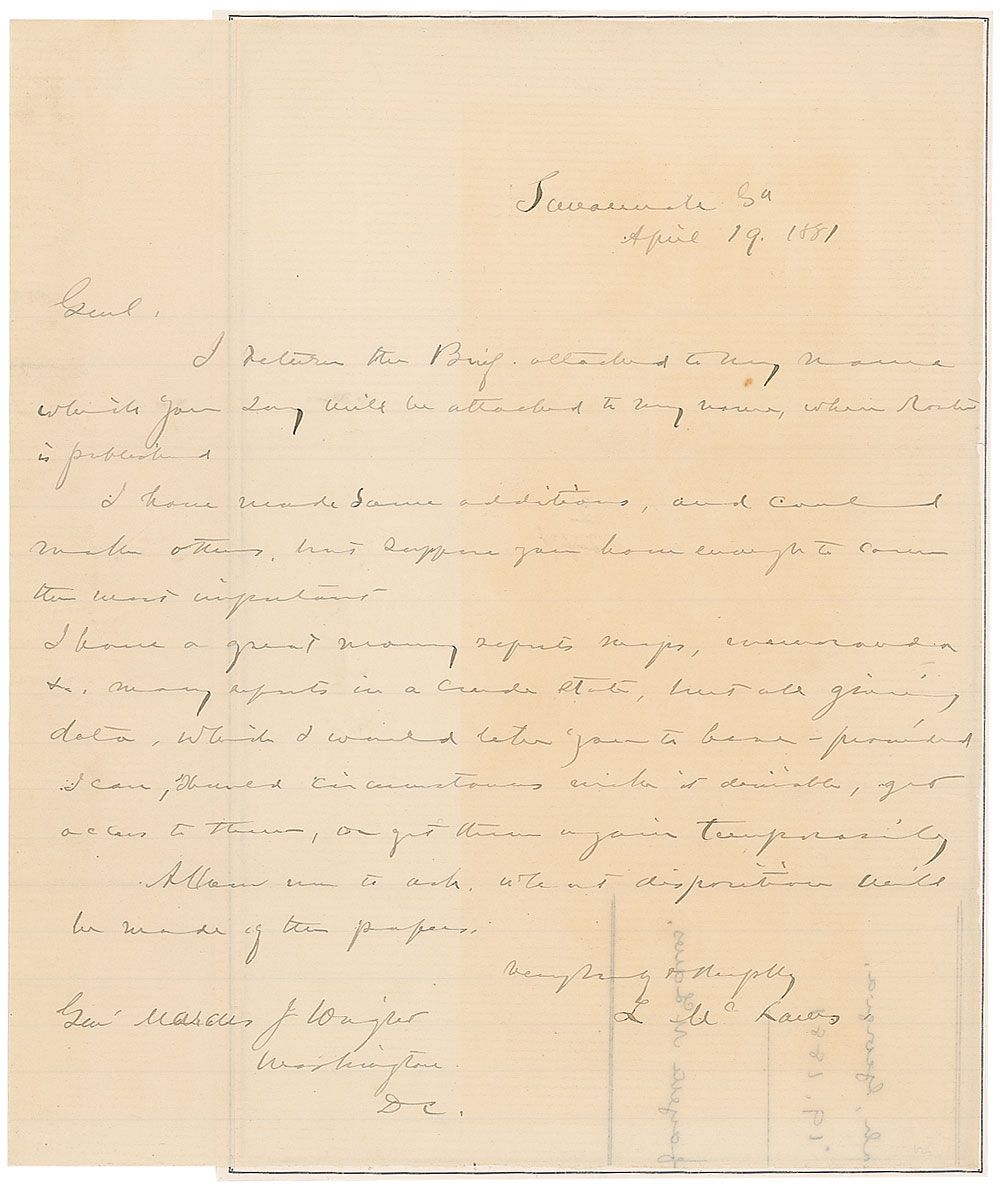 Savannah Ga
April 19. 1881
Genl.
I return the Brief. attached to my name
which you say will be attached to my name, when Roster
is published
I have made some additions, and could
make others, but suppose you have enough to cover
the most important
I have a great many reports maps, memoranda
&c. many reports in a crude state, but all giving
data, which I would like you to have - provided
I can, should circumstances make it desirable, get
access to them, or get them again temporarily
Allow me to ask, what disposition will
be made of the papers.
Very truly & Resptly
L McLaws
Genl Marcus J Wright
Washington
D C.